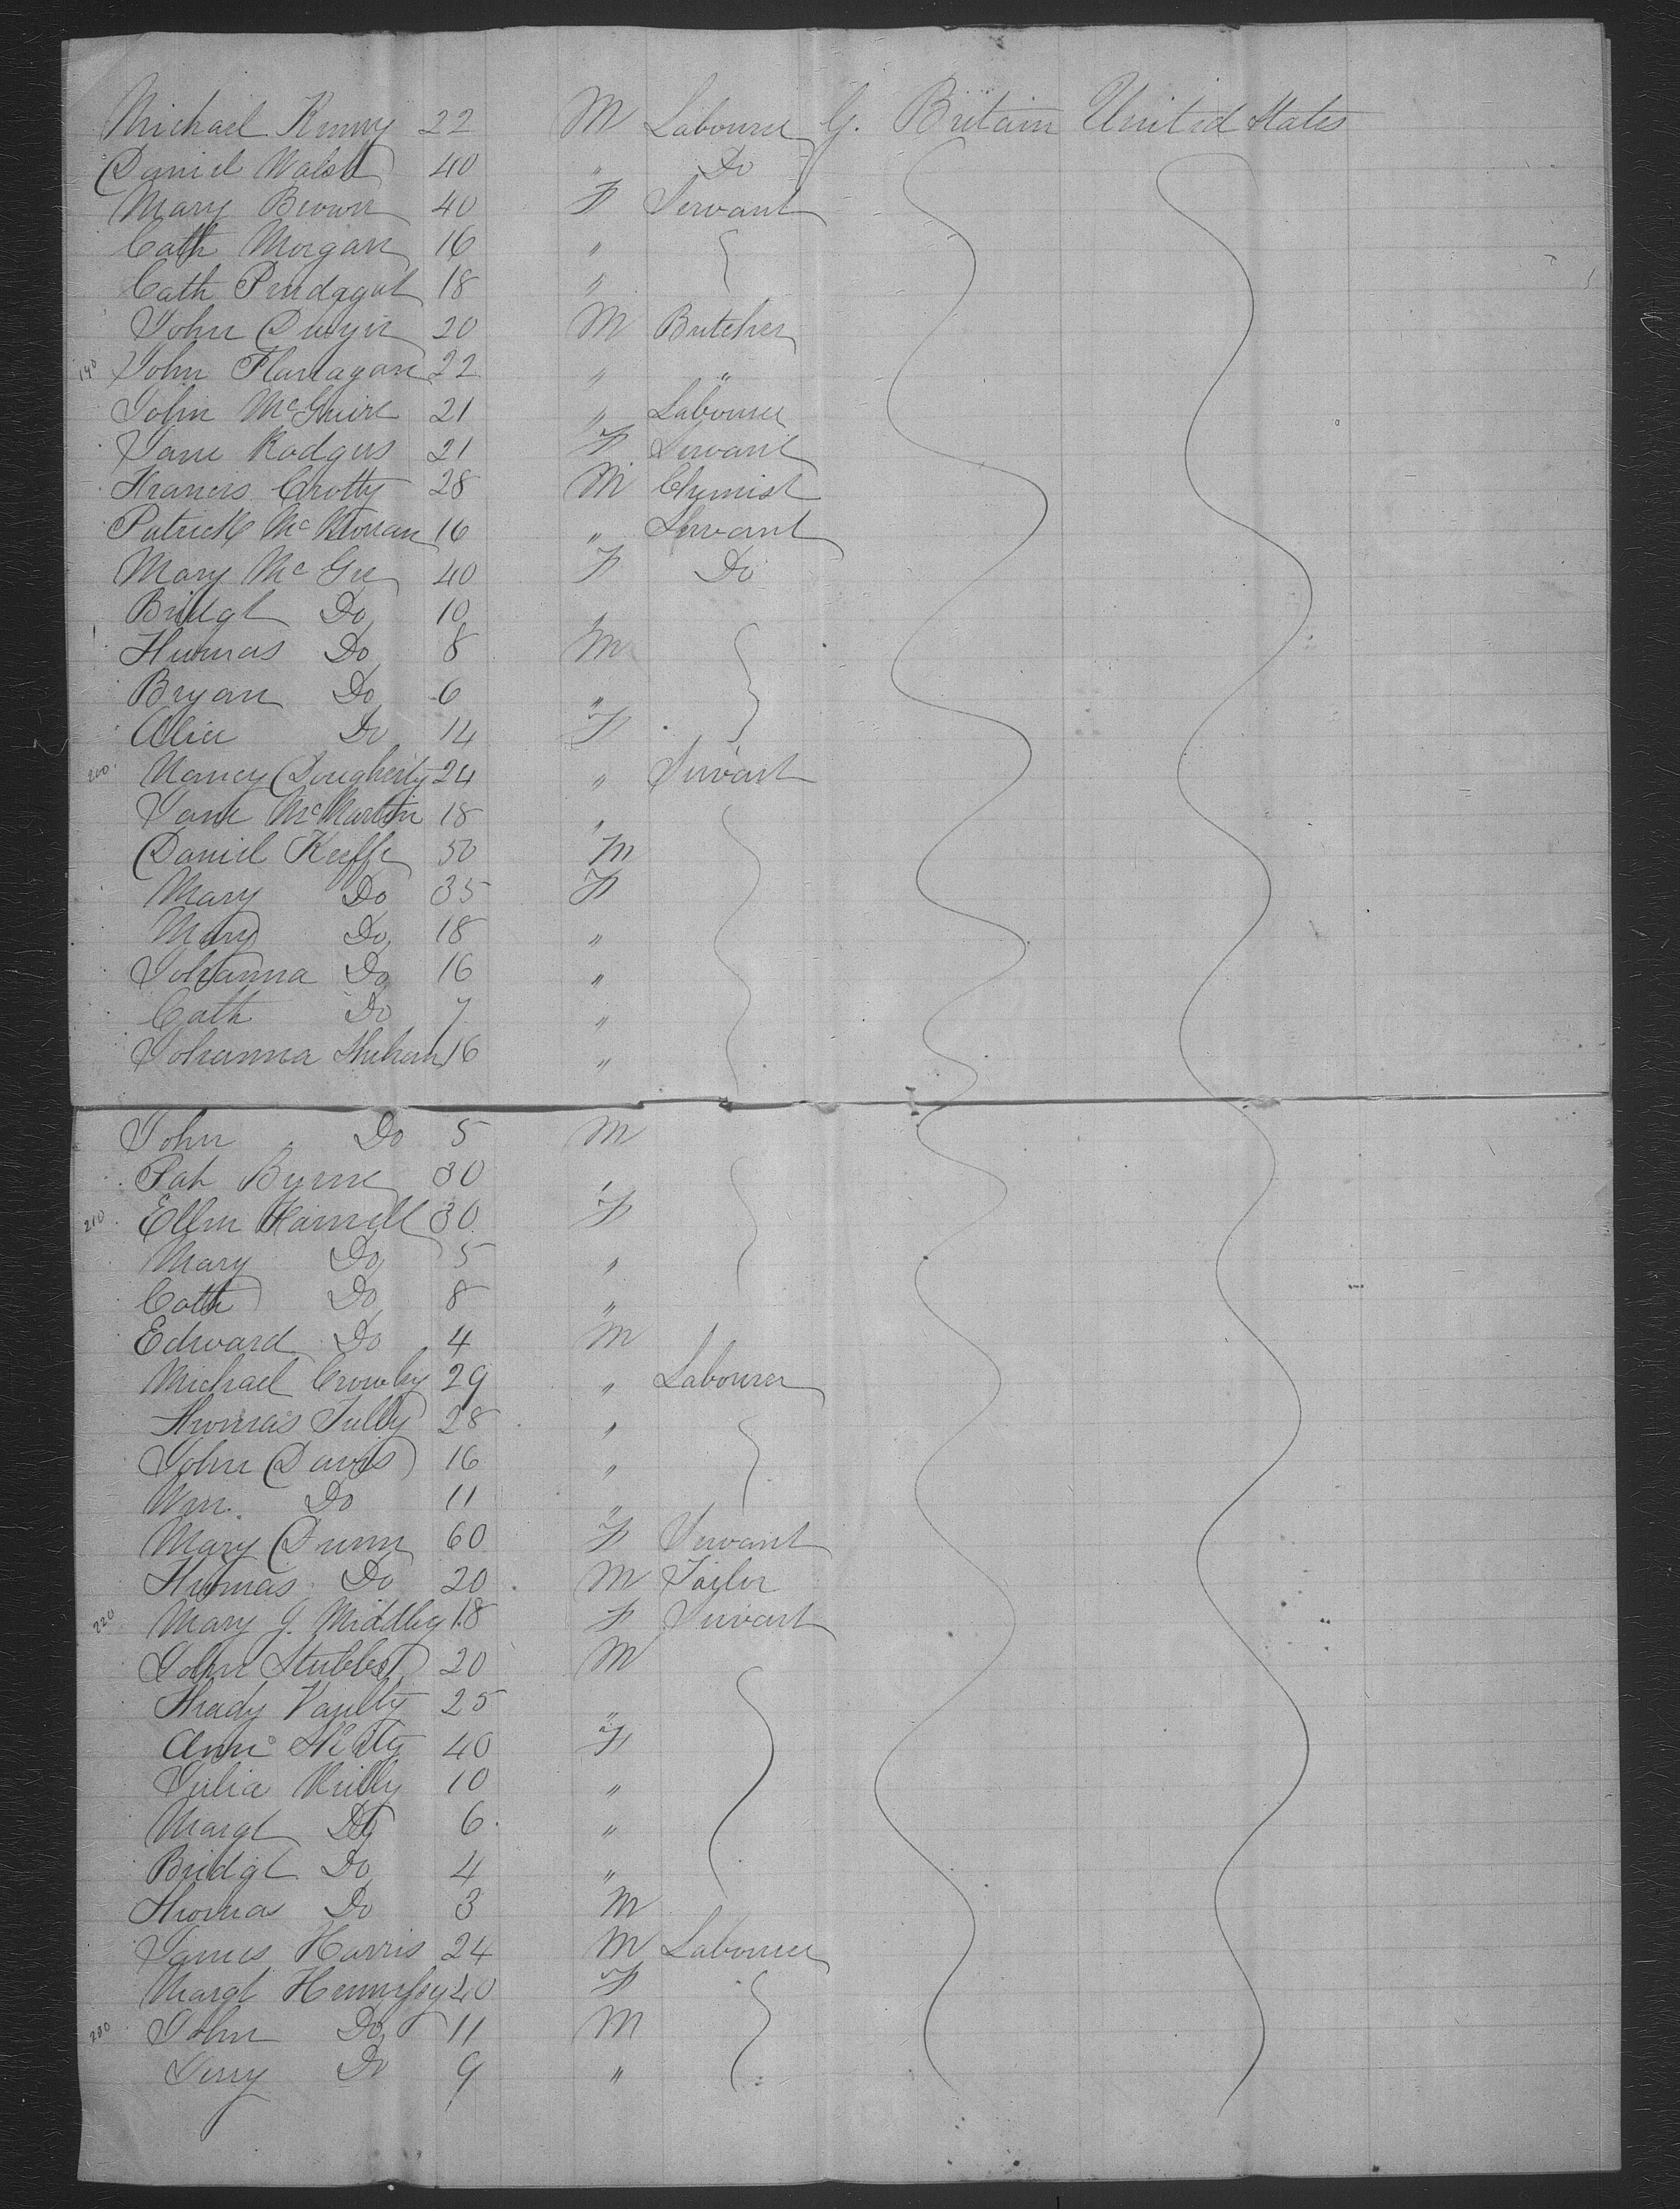 Michael Kenny 22 M Labourer G. Britain United States
Daniel Walsh 40 " Do
Mary Brown 40 F Servant
Cath Morgan 16 "
Cath Prndggat 18 "
John Dwyer 20 M Butcher
140 John Flanagan 22 " "
John McGuire 21 " Labourer
Jane Rodgers 21 F Servant
Francis Crotty 28 M Chemist
Patrick Mc 16 " Servant
Mary McGee 40 F Do
Bridgt Do 10 "
Thomas Do 8 M
Bryan Do 6 "
Alice Do 14 F
200 Nancy Dougherty 24 " Servant
Jane McMartin 18 "
Daniel Keeffe 50 M
Mary Do 35 F
Mary Do 18 "
Johanna Do 16 "
Cath Do 7 "
Johanna Shehan 16 "
John Do 5 M
Pat Byrne 30 "
210 Ellen Farrell 30 F
Mary Do 5 "
Cath Do 8 "
Edward Do 4 M
Michael Crowley 29 " Labourer
Thomas Tully 28 "
John Davis 16 "
Wm. Do 11 "
Mary Dunn 60 F Servant
Thomas Do 20 M Tailor
220 Mary J. Middley 18 F Servant
John Stubbs 20 M
Thady 25 "
Ann 40 F
Julia Reilly 10 "
Margt Do 6 "
Bridgt Do 4 "
Thomas Do 3 M
James Harris 24 M Labourer
Margt Hennessy 40 F
230 John Do 11 M
Jerry Do 9 "